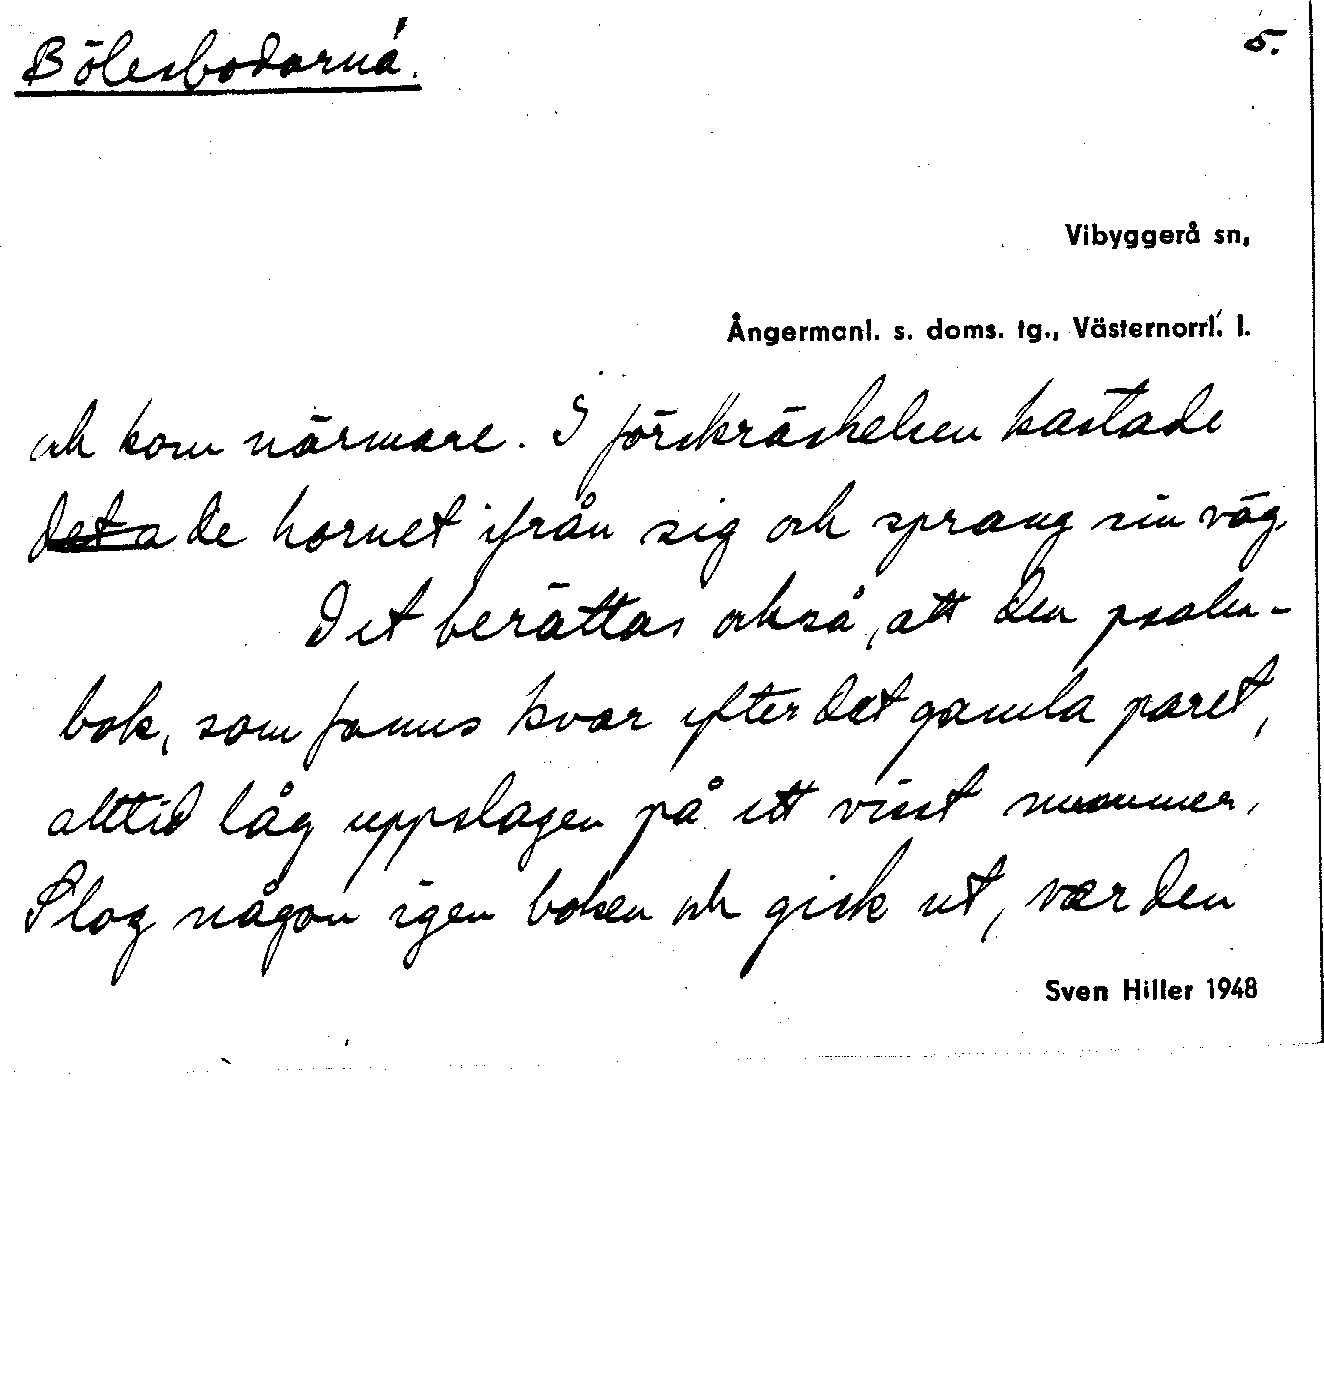 Bölesbodarna. 5.
Vibyggerå sn,
Ångermanl. s. doms. tg., Västernorrl. l.
och kom närmare. I förskräckelsen kastade
deta de hornet ifrån sig och sprang sin väg.
Det berättas också, att den psalm-
bok, som fanns kvar efter det gamla paret,
alltid låg uppslagen på ett visst nummer.
Slog någon igen boken och gick ut, var den
Sven Hiller 1948